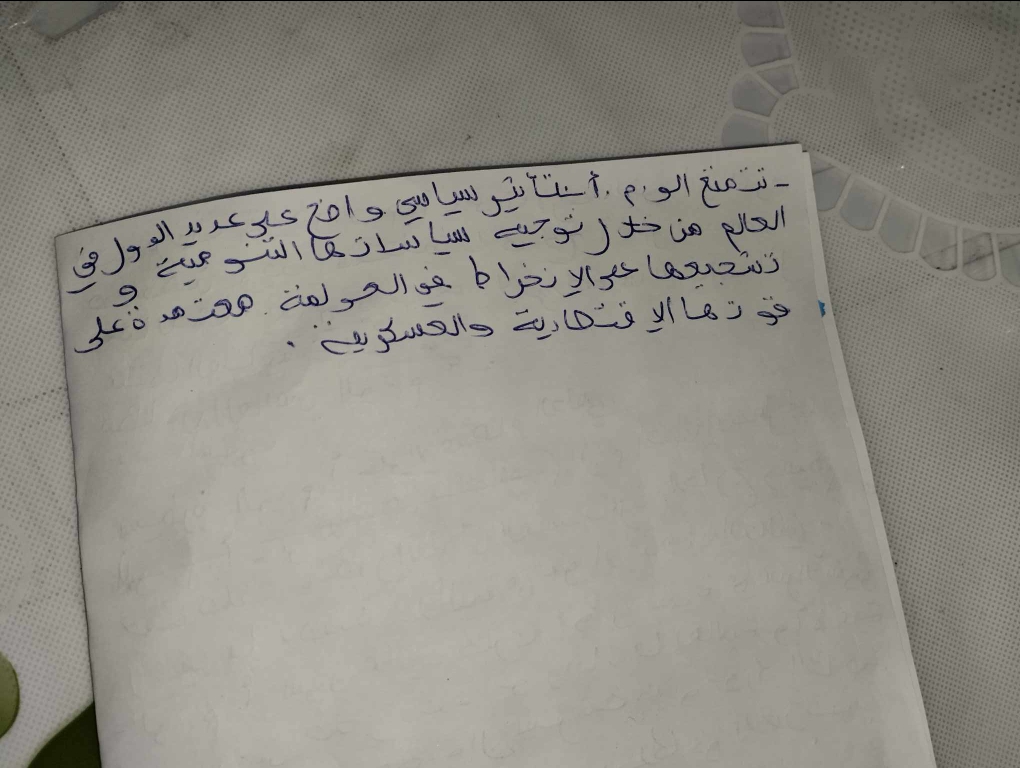 - تتمتع الو.م.أ بتأثير سياسي واضح على عديد الدول في
العالم من خلال توجيه سياساتها التنموية و
تشجيعها على الإنخراط في العولمة معتمدة على
قوتها الإقتصادية والعسكرية .